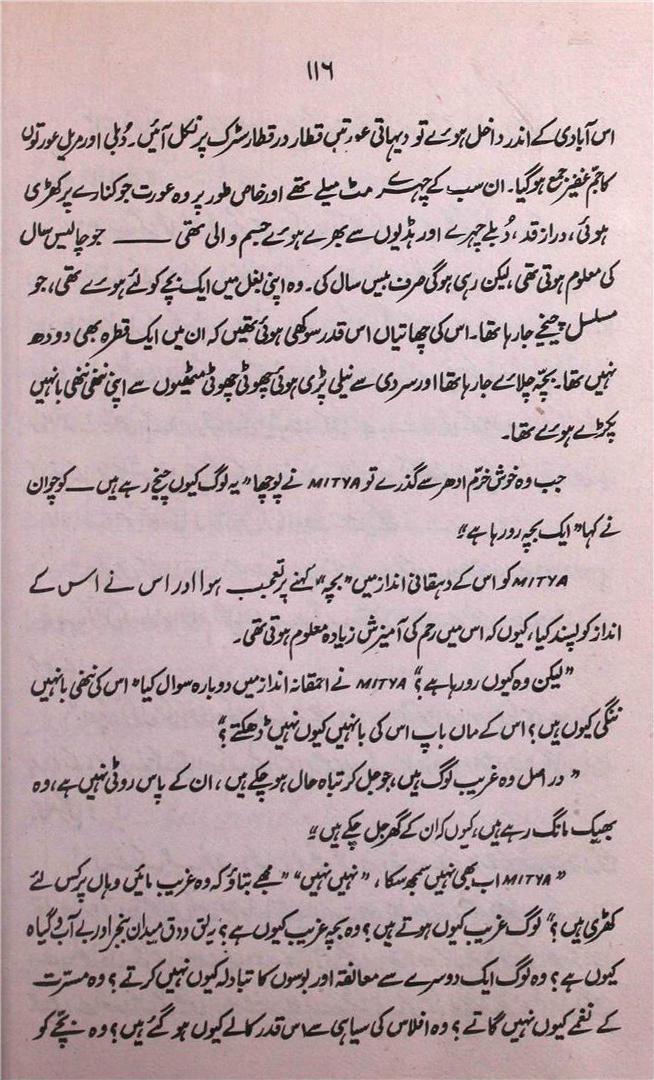 ۱۱۶
اس آبادی کے اندر داخل ہوئے تو دیہاتی عورتیں قطار در قطار سڑک پر نکل آئیں۔ دُبلی اور مریل عورتوں
کا جمِّ غفیر جمع ہو گیا۔ ان سب کے چہرے مٹ میلے تھے اور خاص طور پر وہ عورت جو کنارے پر کھڑی
ہوئی، دراز قد، دُبلے چہرے اور ہڈیوں سے بھرے ہوئے جسم والی تھی —— جو چالیس سال
کی معلوم ہوتی تھی، لیکن رہی ہوگی صرف بیس سال کی۔ وہ اپنی بغل میں ایک بچے کو لئے ہوئے تھی، جو
مسلسل چیخے جا رہا تھا۔ اس کی چھاتیاں اس قدر سوکھی ہوئی تھیں کہ ان میں ایک قطرہ بھی دودھ
نہیں تھا۔ بچہ چلائے جا رہا تھا اور سردی سے نیلی پڑی ہوئی چھوٹی چھوٹی مٹھیوں سے اپنی ننھی ننھی بانہیں
پکڑے ہوئے تھا۔
جب وہ خوش خرم ادھر سے گذرے تو MITYA نے پوچھا "یہ لوگ کیوں چیخ رہے ہیں — کوچوان
نے کہا "ایک بچہ رو رہا ہے"
MITYA کو اس کے دہقانی انداز میں "بچہ" کہنے پر تعجب ہوا اور اس نے اس کے
انداز کو پسند کیا، کیوں کہ اس میں رحم کی آمیزش زیادہ معلوم ہوتی تھی۔
"لیکن وہ کیوں رو رہا ہے؟" MITYA نے احمقانہ انداز میں دوبارہ سوال کیا "اس کی ننھی بانہیں
ننگی کیوں ہیں؟ اس کے ماں باپ اس کی بانہیں کیوں نہیں ڈھکتے؟"
"در اصل وہ غریب لوگ ہیں، جو جل کر تباہ حال ہو چکے ہیں، ان کے پاس روٹی نہیں ہے، وہ
بھیک مانگ رہے ہیں، کیوں کہ ان کے گھر جل چکے ہیں"
"MITYA اب بھی نہیں سمجھ سکا، "نہیں نہیں" "مجھے بتاؤ کہ وہ غریب مائیں وہاں پر کس لئے
کھڑی ہیں؟" لوگ غریب کیوں ہوتے ہیں؟ وہ بچہ غریب کیوں ہے؟ یہ لق و دق میدان بنجر اور بے آب و گیاہ
کیوں ہے؟ وہ لوگ ایک دوسرے سے معانقہ اور بوسوں کا تبادلہ کیوں نہیں کرتے؟ وہ مسرت
کے نغمے کیوں نہیں گاتے؟ وہ افلاس کی سیاہی سے اس قدر کالے کیوں ہو گئے ہیں؟ وہ بچّے کو